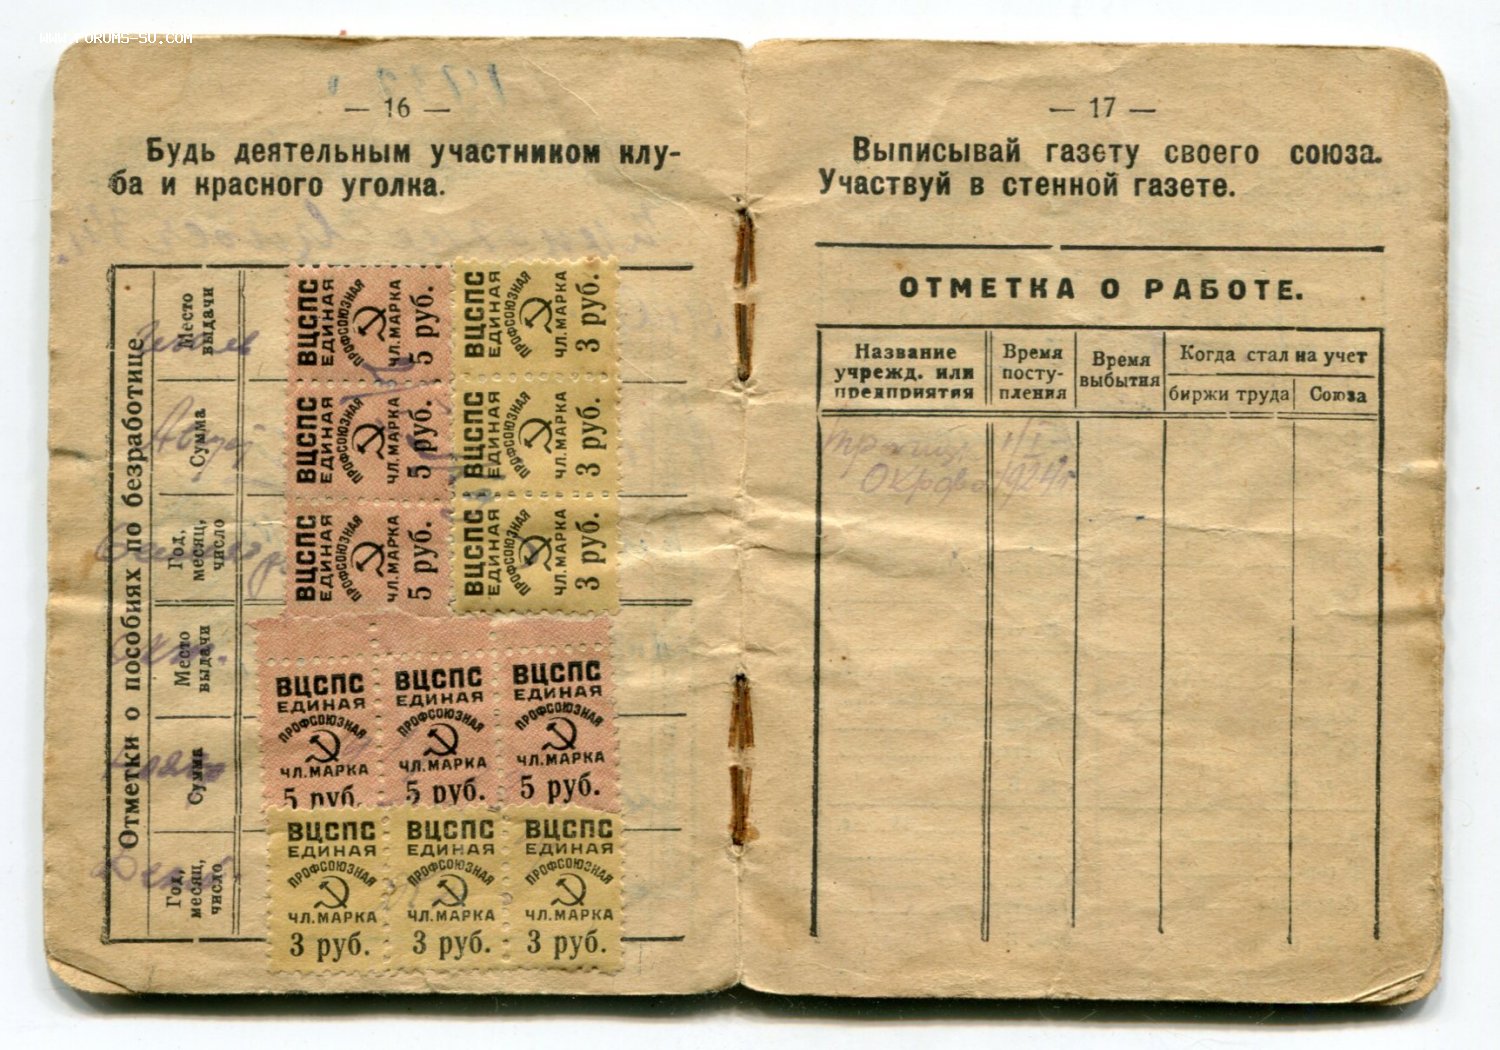 WWW.FORUMS-SU.COM
— 16 —
Будь деятельным участником клу-
ба и красного уголка.
Отметки о пособиях по безработице
Место
выдачи
Сумма
Год,
месяц,
число
Место
выдачи
Сумма
Год,
месяц,
число
Август
Окт.
ВЦСПС
ЕДИНАЯ
ПРОФСОЮЗНАЯ
ЧЛ. МАРКА
5 руб.
ВЦСПС
ЕДИНАЯ
ПРОФСОЮЗНАЯ
ЧЛ. МАРКА
3 руб.
ВЦСПС
ЕДИНАЯ
ПРОФСОЮЗНАЯ
ЧЛ. МАРКА
5 руб.
ВЦСПС
ЕДИНАЯ
ПРОФСОЮЗНАЯ
ЧЛ. МАРКА
3 руб.
ВЦСПС
ЕДИНАЯ
ПРОФСОЮЗНАЯ
ЧЛ. МАРКА
5 руб.
ВЦСПС
ЕДИНАЯ
ПРОФСОЮЗНАЯ
ЧЛ. МАРКА
3 руб.
ВЦСПС ВЦСПС ВЦСПС
ЕДИНАЯ ЕДИНАЯ ЕДИНАЯ
ПРОФСОЮЗНАЯ ПРОФСОЮЗНАЯ ПРОФСОЮЗНАЯ
ЧЛ. МАРКА ЧЛ. МАРКА ЧЛ. МАРКА
5 руб. 5 руб. 5 руб.
ВЦСПС ВЦСПС ВЦСПС
ЕДИНАЯ ЕДИНАЯ ЕДИНАЯ
ПРОФСОЮЗНАЯ ПРОФСОЮЗНАЯ ПРОФСОЮЗНАЯ
ЧЛ. МАРКА ЧЛ. МАРКА ЧЛ. МАРКА
3 руб. 3 руб. 3 руб.
— 17 —
Выписывай газету своего союза.
Участвуй в стенной газете.
ОТМЕТКА О РАБОТЕ.
Название
учрежд. или
предприятия
Время
посту-
пления
Время
выбытия
Когда стал на учет
биржи труда
Союза